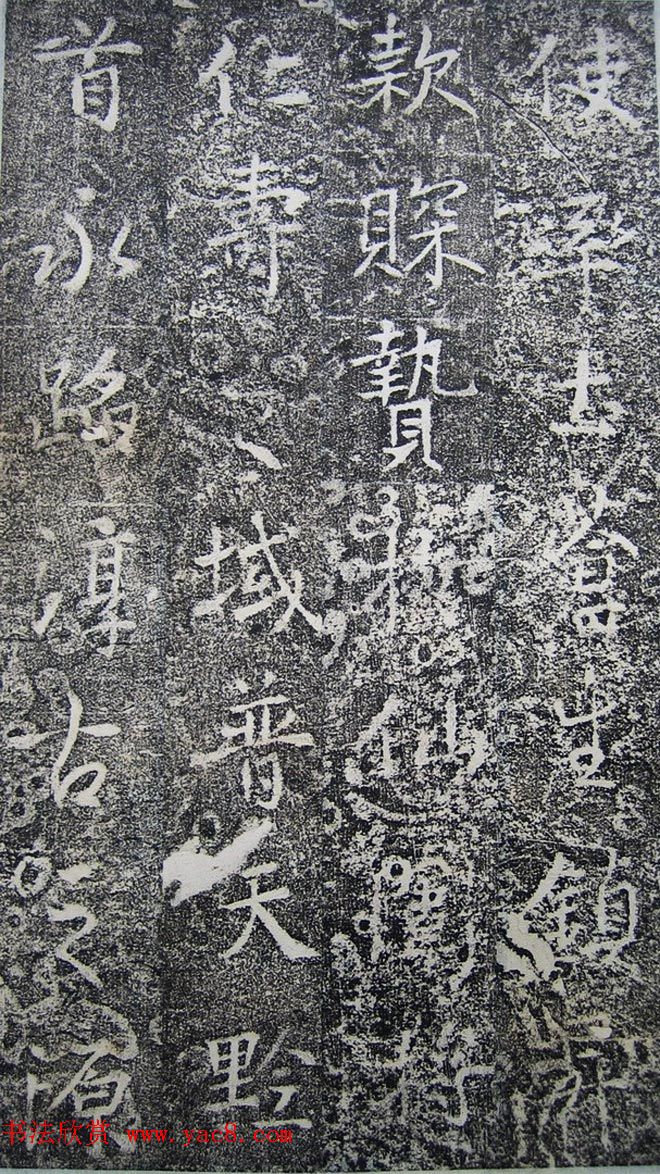 使率土蒼生鎮
款賝贄於仙
仁壽之域普天黔
首永蹈淳古之源
书法欣赏 www.yac8.com